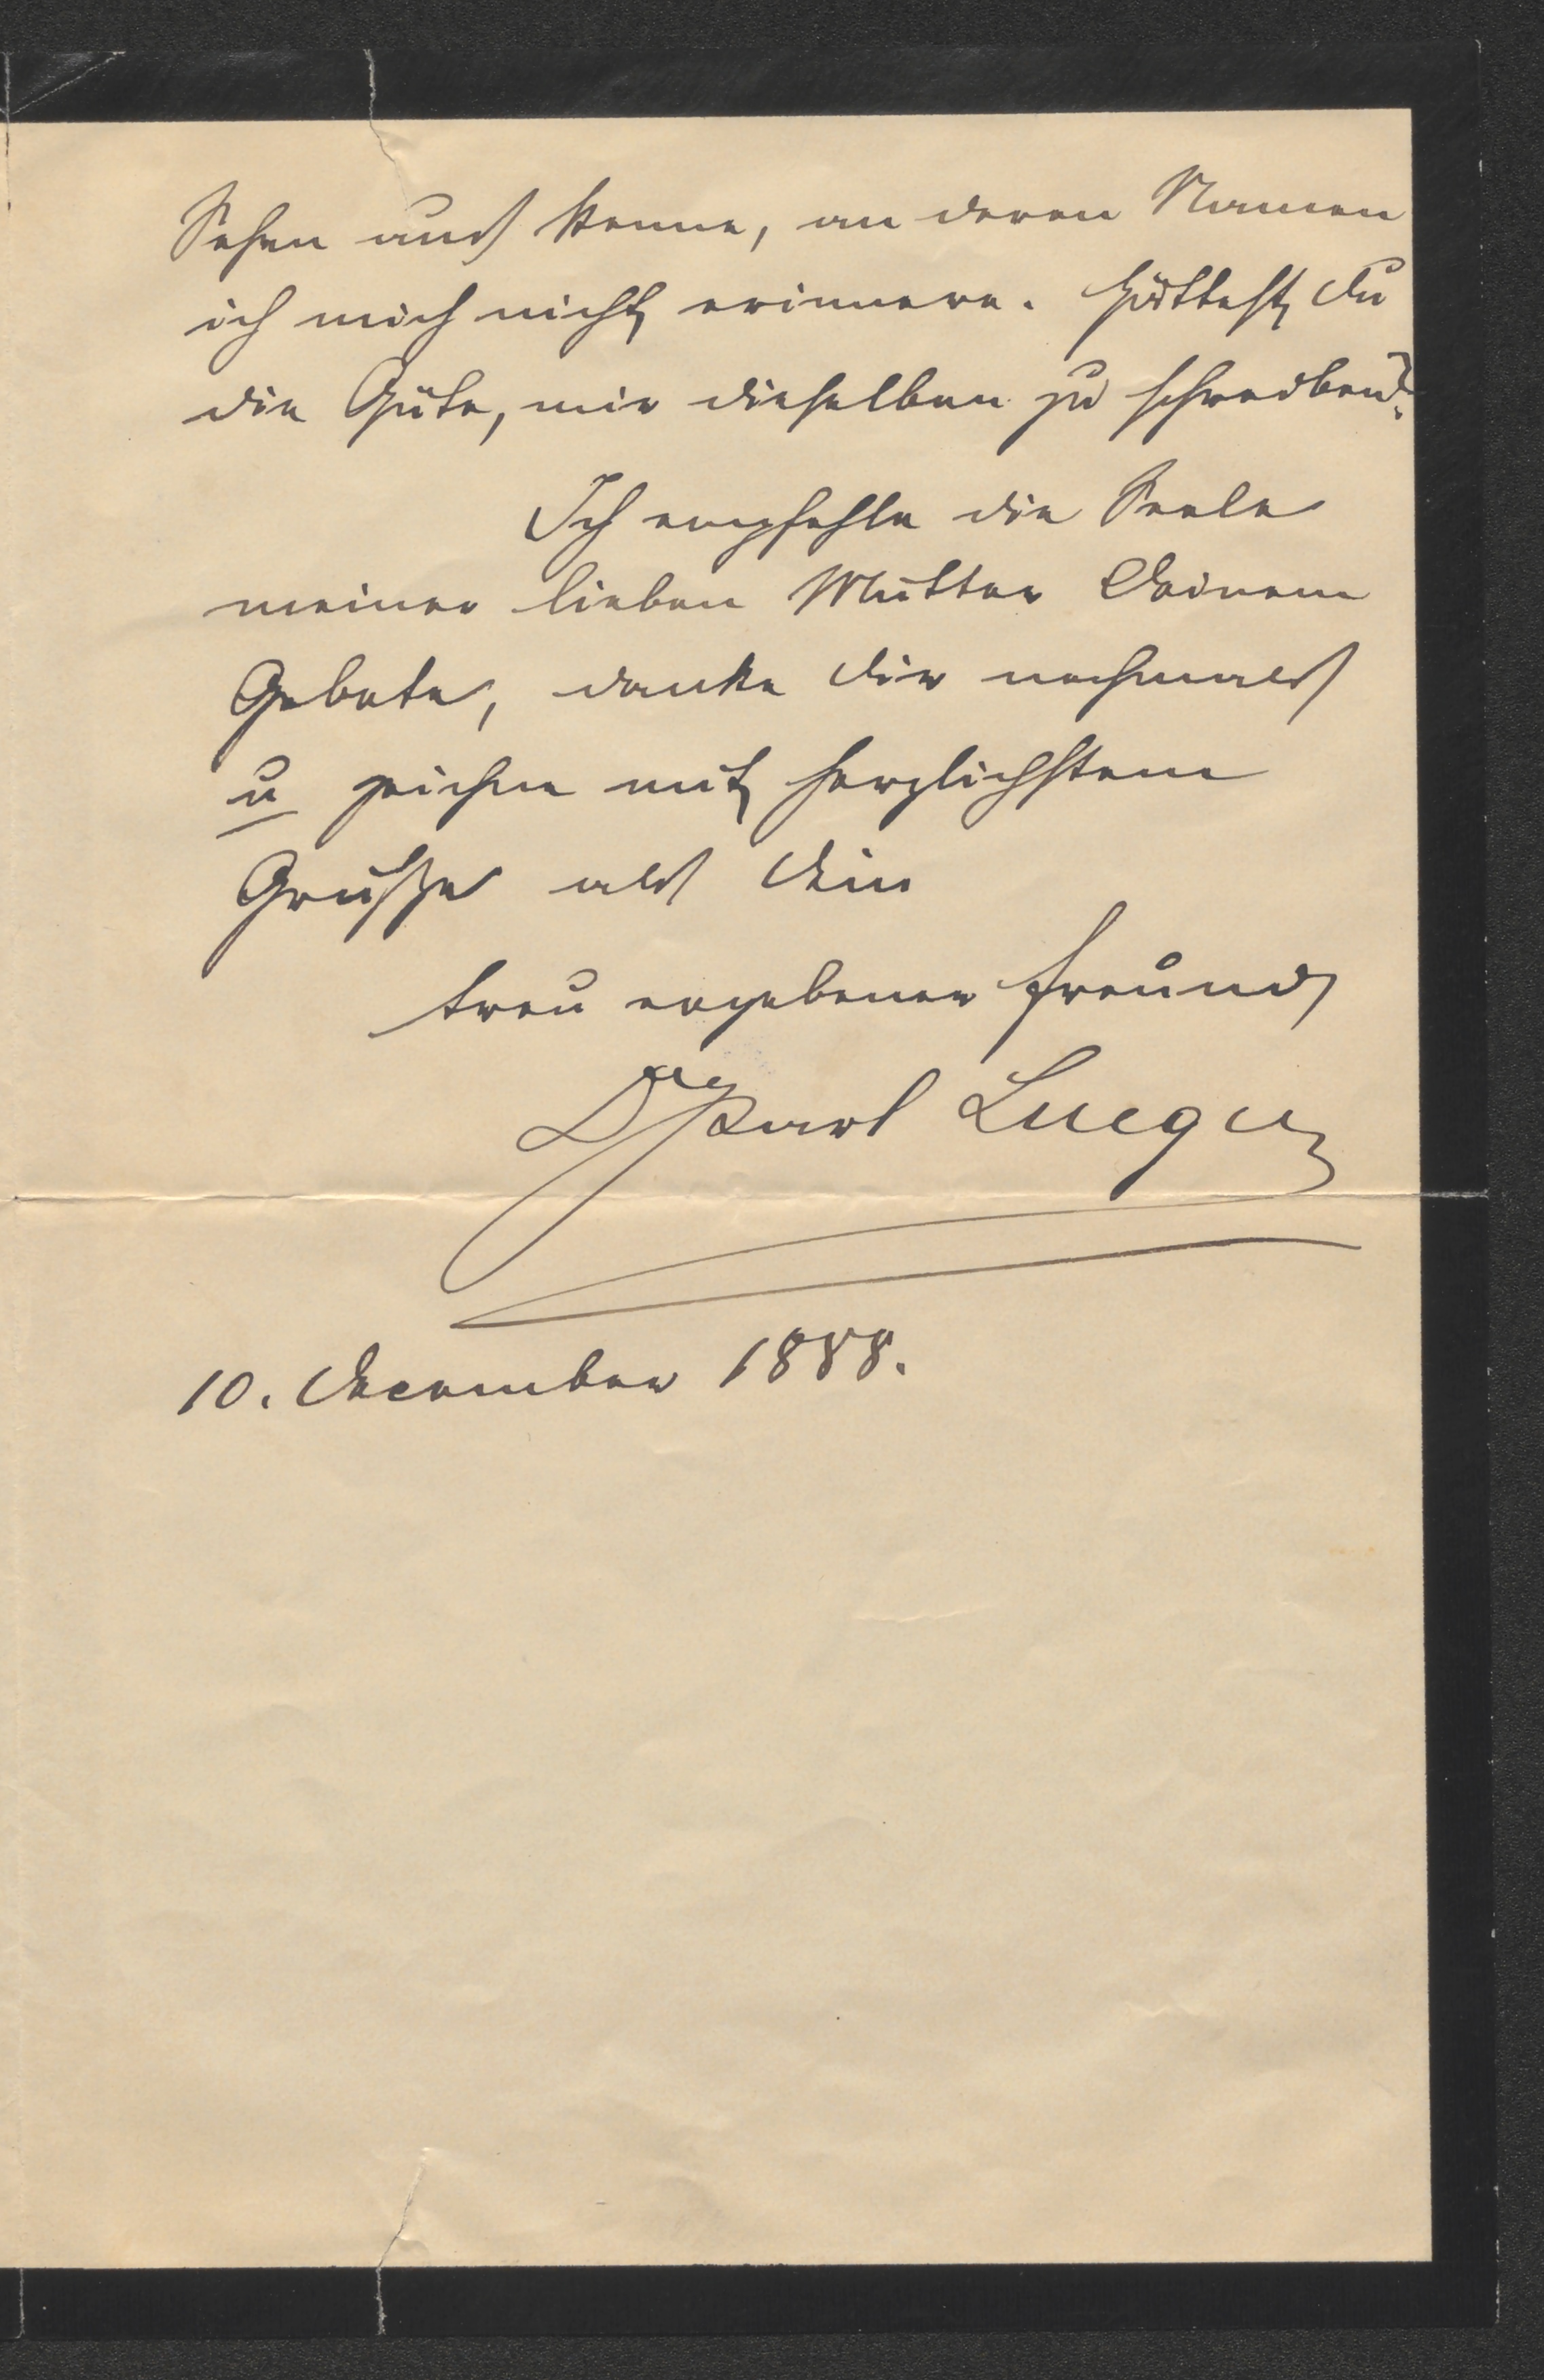 Sehen aus kenne, an deren Namen
ich mich nicht erinnere. Hättest Du
die Güte, mir dieselben zu schreiben?
Ich empfehle die Seele
meiner lieben Mutter Deinem
Gebete, danke Dir nochmals
u zeichne mit herzlichstem
Gruße als Dein
treu ergebener Freund
Dr Karl Lueger
10. December 1888.